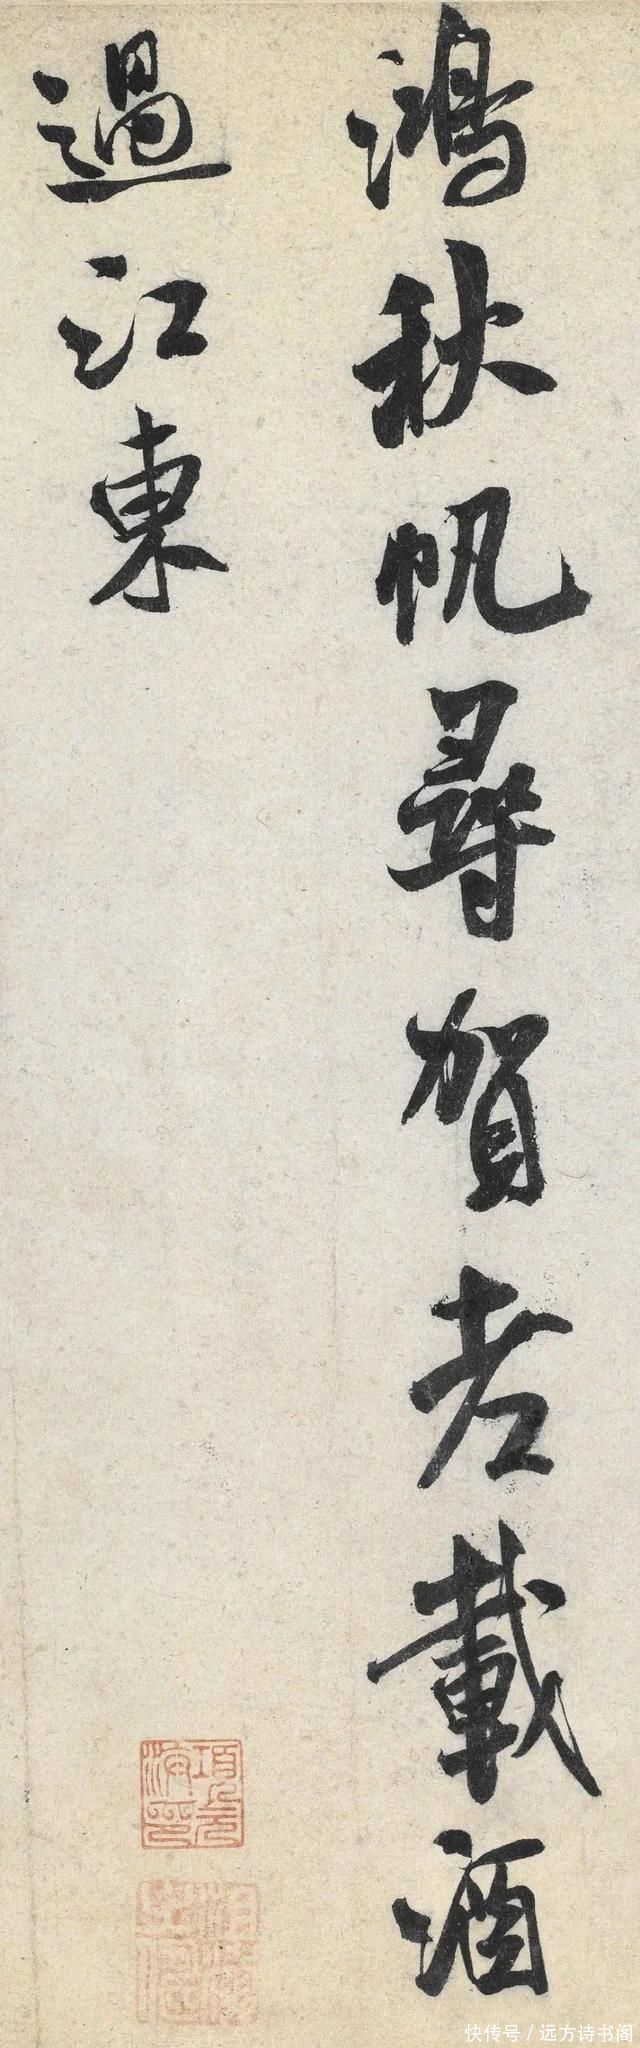 鴻秋帆尋賀老載酒
過江東
快传号/远方诗书阁